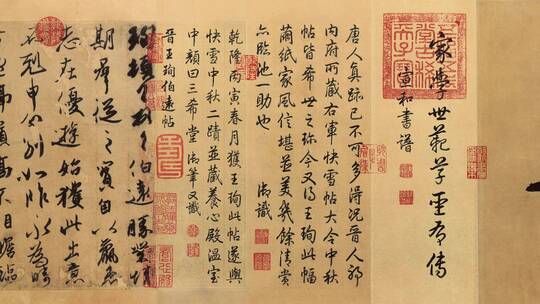 家學世範草聖有傳
宣和書譜
唐人真跡已不可多得況晉人耶
內府所藏右軍快雪帖大令中秋
帖皆希世之珍今又得王珣此幅
繭紙家風信堪並美幾餘清賞
亦臨池一助也 御識
乾隆丙寅春月獲王珣此帖遂與
快雪中秋二蹟並藏養心殿溫室
中顏曰三希堂御筆又識
晉王珣伯遠帖
珣頓首頓首伯遠勝業情
期群從之寶自以羸患
志在優游始獲此出意
不剋申分別如昨永為疇
隔嶺嶠不相瞻臨